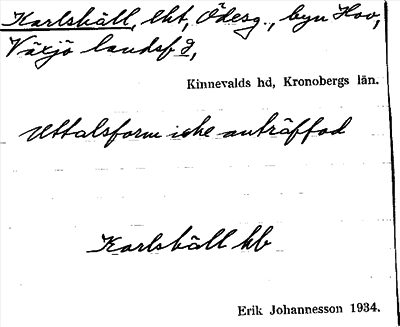 Karlshäll, lht, Ödesg., byn Hov,
Växjö landsf g,
Kinnevalds hd, Kronobergs län.
Uttalsform icke anträffad
Karlshäll kb
Erik Johannesson 1934.